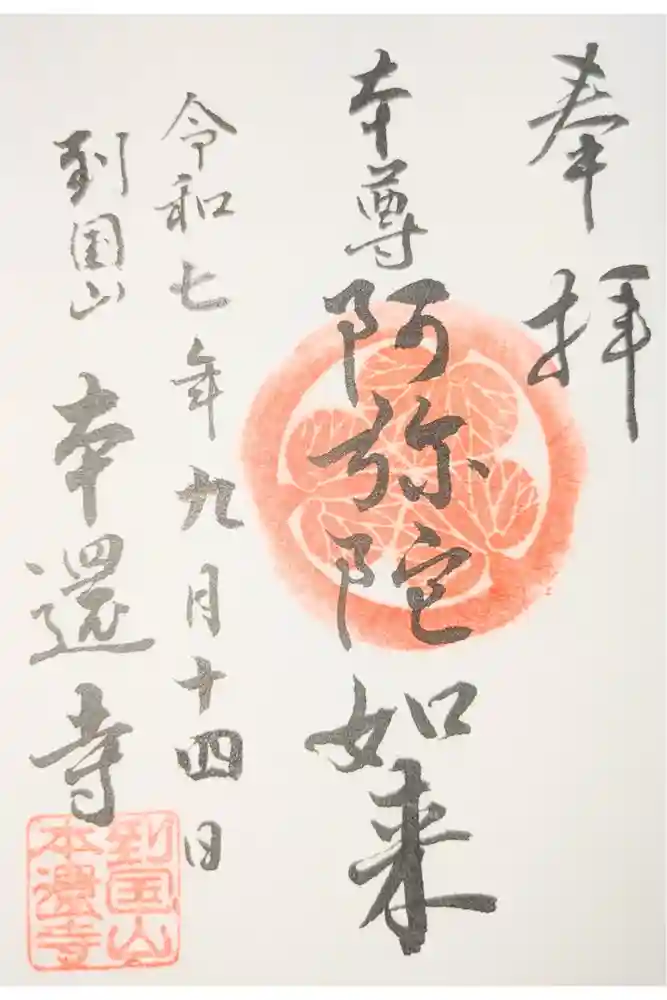 奉拝
本尊 阿弥陀如来
令和七年九月十四日
到国山 本還寺
到国山
本還寺